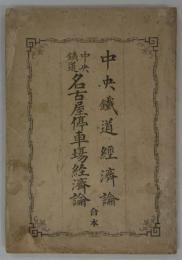 中央鐵道經濟論
中央鐵道名古屋停車場經濟論
合本